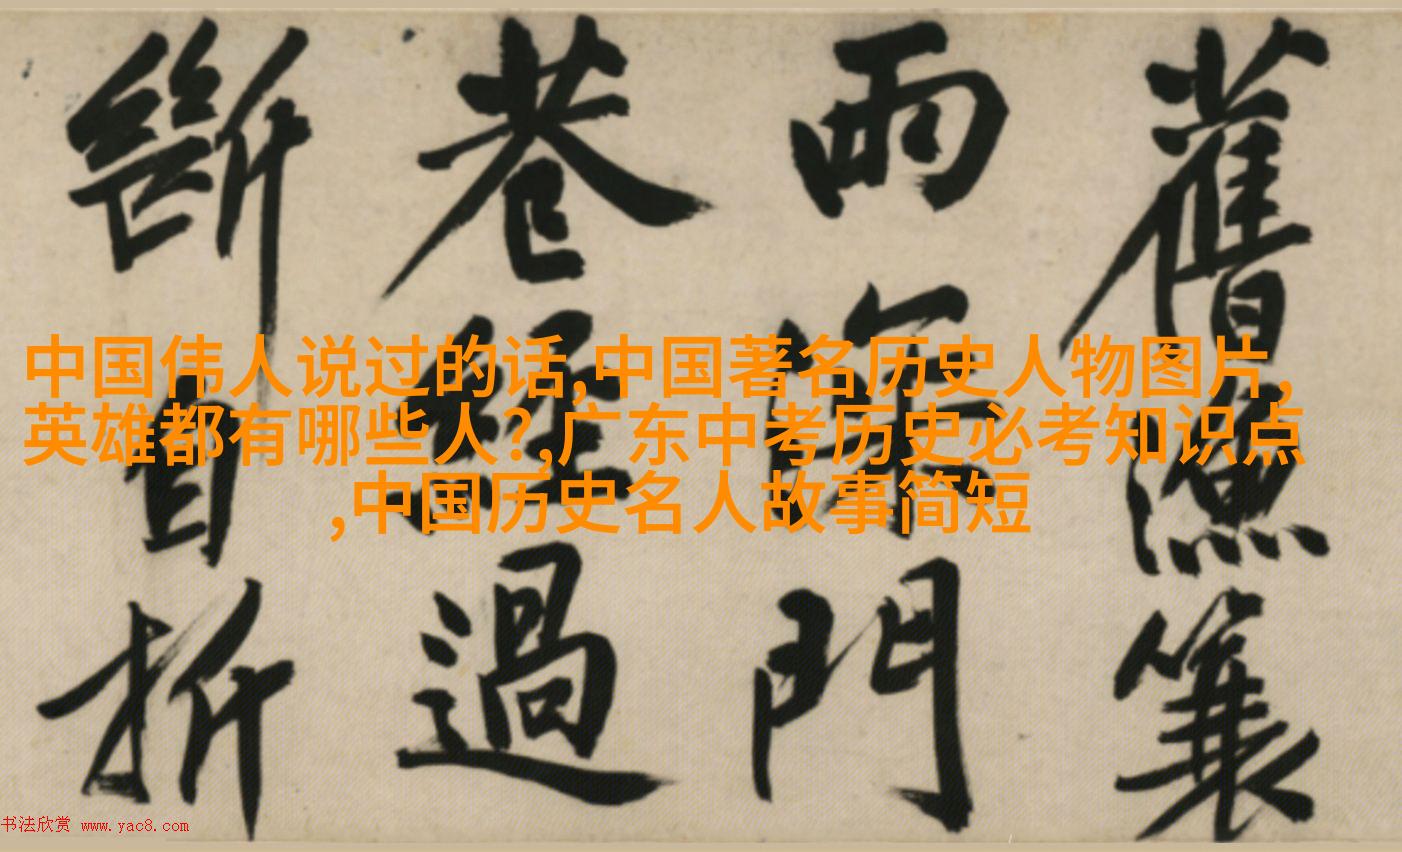 舊漁蓑
雨深門
巷經過
斷自折
中国伟人说过的话,中国著名历史人物图片,
英雄都有哪些人?,广东中考历史必考知识点
,中国历史名人故事简短
书法欣赏 www.yac8.com